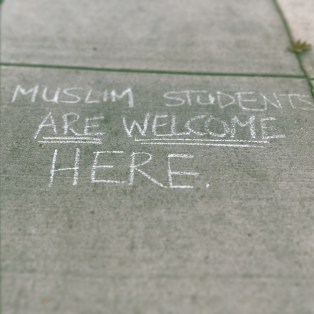 MUSLIM STUDENTS
ARE WELCOME
HERE.